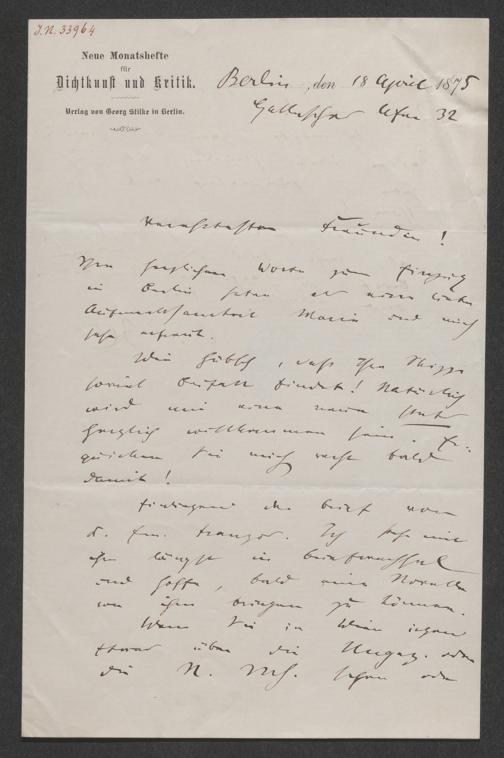 J.N. 33964
Neue Monatshefte
für
Dichtkunst und Kritik.
Verlag von Georg Stilke in Berlin.
Berlin, den 18 April 1875
Hallesches Ufer 32
Verehrteste Freundin!
Ihre herzlichen Worte zum Einzug
in Berlin haben als eine liebe
Aufmerksamkeit Marie und mich
sehr erfreut.
Wie hübsch, daß Ihre Skizze
soviel Beifall findet! Natürlich
wird mir eine neue
herzlich willkommen sein. Er-
quicken Sie mich recht bald
damit!
den Brief von
d. Em. Franzos. Ich stehe mit
ihm längst in Briefwechsel
und hoffe, bald eine Novelle
von ihm bringen zu können.
Wenn Sie in Wien irgend
etwas über die oder
die N. Mh. sehen oder